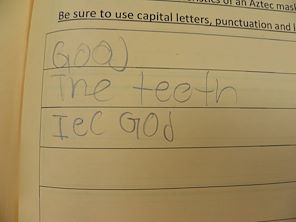 eristics of an Aztec mask
Be sure to use capital letters, punctuation and
Goa)
The teeth
Iec God